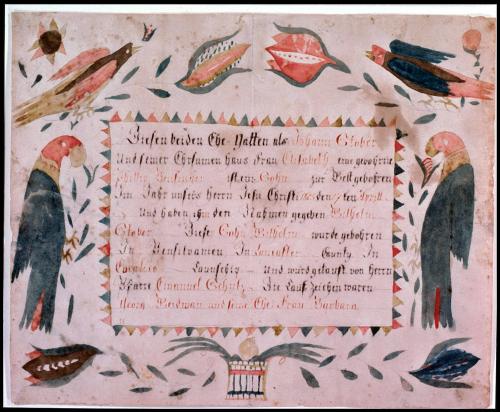 Diesen beiden Ehe Hatten als Johann Glober
Und seiner Ehrsamen haus Frau Elisabeth eine gebohrne
ist ein Sohn zur Welt gebohren
Im Jahr unsers Herrn Jesu Christi den ten
Und haben ihm den Nahmen gegeben Wilhelm
Glober Dieser Sohn Wilhelm wurde gebohren
In Pensilvanien In Lancaster Caunty In
Taunschip Und wird getauft von Herrn
Pfarre Emanuel Schultz Die Tauf Zeichen waren
Georg und seine Ehe Frau Barbara